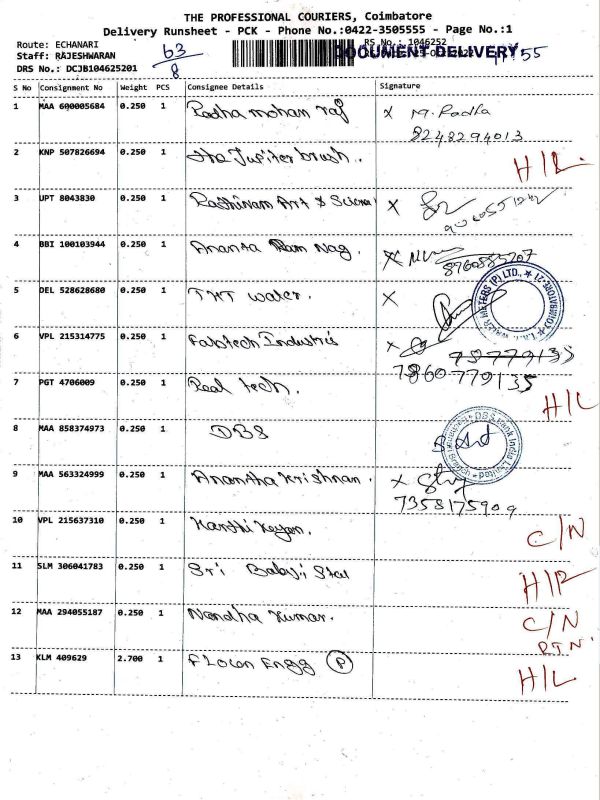 THE PROFESSIONAL COURIERS, Coimbatore
Delivery Runsheet - PCK - Phone No.:0422-3505555 - Page No.:1
Route: ECHANARI 63 RS No.: 1046252
Staff: RAJESHWARAN DOCUMENT DELIVERY 55
DRS No.: DCJB104625201 8
S No Consignment No Weight PCS Consignee Details Signature
1 MAA 600005684 0.250 1 Radha mohan raj x M. Radha
8248294013
2 KNP 507826694 0.250 1 the Jupiter brush. H/L
3 UPT 8043830 0.250 1 Rathinam Art & Science x
4 BBI 100103944 0.250 1 Ananta Ram Nag. x
8760885207
5 DEL 528628680 0.250 1 TNT water. x
METERS (P) LTD., COIMBATORE-21
6 VPL 215314775 0.250 1 Fabtech Industries x
78779135
7860779135
7 PGT 4706009 0.250 1 Real tech. H/L
8 MAA 858374973 0.250 1 DBS
DBS Bank India Limited
9 MAA 563324999 0.250 1 Anantha Krishnan. x
7358175909
10 VPL 215637310 0.250 1 Karthi Keyan. C/N
11 SLM 306041783 0.250 1 Sri Balaji Star H/R
12 MAA 294055187 0.250 1 Nandha Kumar. C/N
RTN.
13 KLM 409629 2.700 1 Flown Engg P H/L